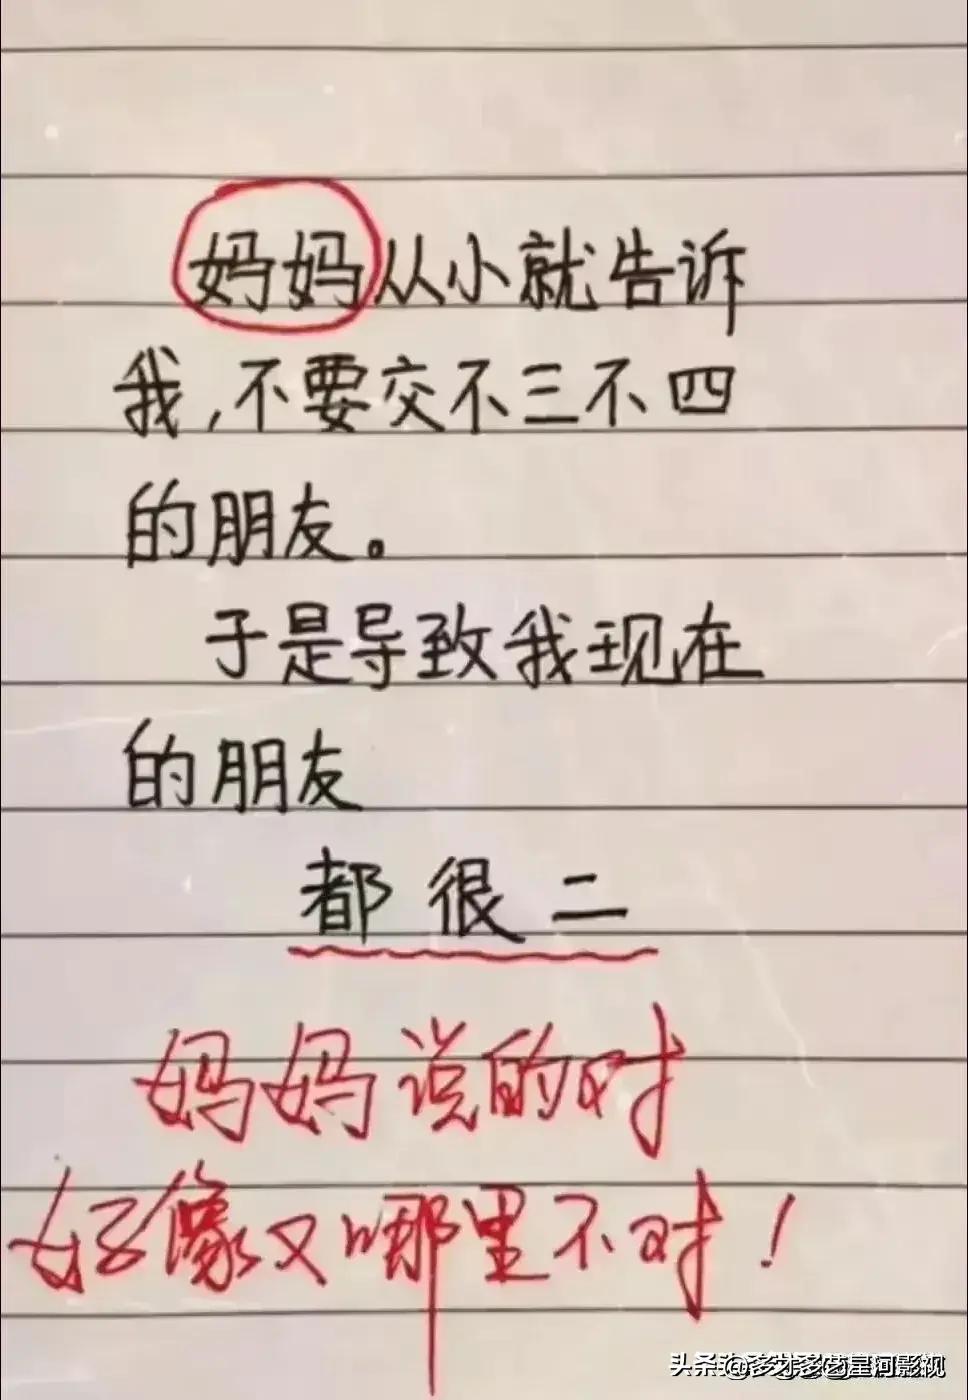 妈妈从小就告诉
我,不要交不三不四
的朋友。
于是导致我现在
的朋友
都很二
妈妈说的对
好像又哪里不对！
头条@多才多艺星河影视